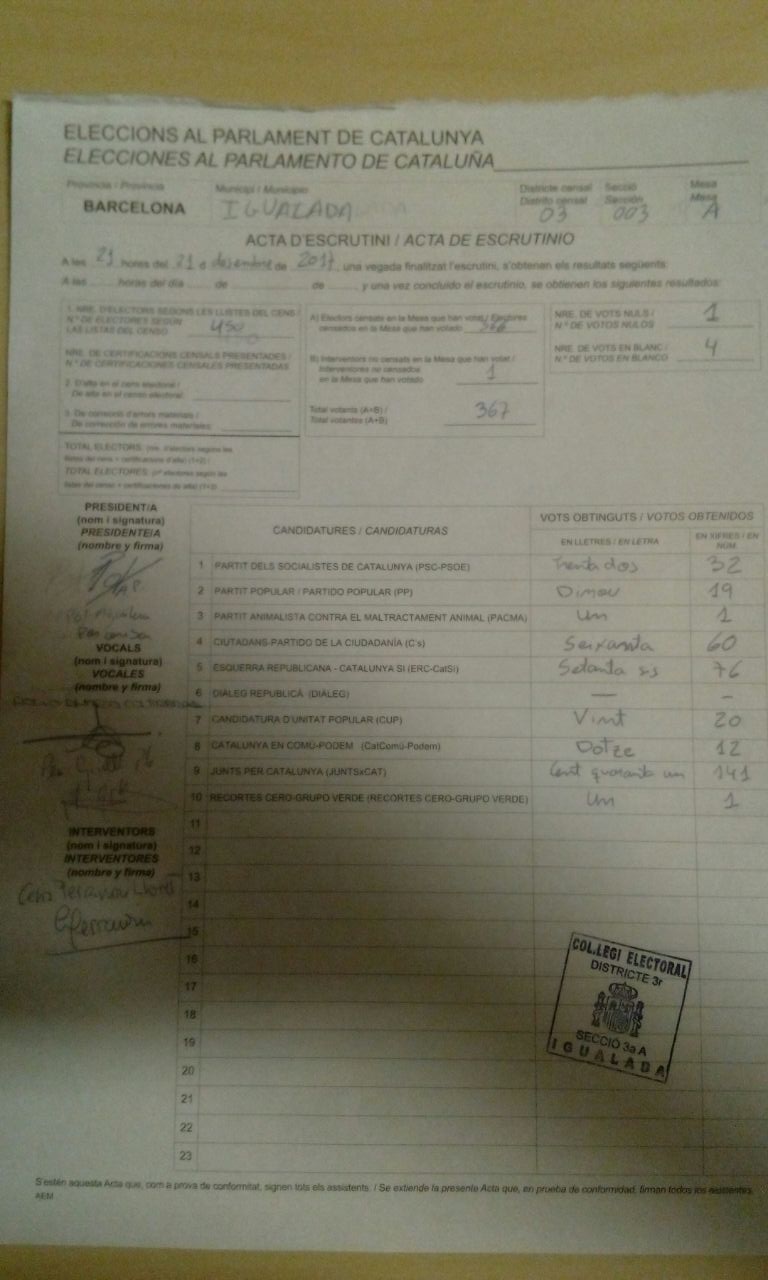 ELECCIONS AL PARLAMENT DE CATALUNYA
ELECCIONES AL PARLAMENTO DE CATALUÑA
Província / Provincia Municipi / Municipio Districte censal Secció Mesa
Distrito censal Sección Mesa
BARCELONA IGUALADA 03 003 A
ACTA D'ESCRUTINI / ACTA DE ESCRUTINIO
A les 21 hores del 21 d desembre de 2017, una vegada finalitzat l'escrutini, s'obtenen els resultats següents:
A las horas del día de de y una vez concluido el escrutinio, se obtienen los siguientes resultados:
1. NRE. D'ELECTORS SEGONS LES LLISTES DEL CENS /
N.º DE ELECTORES SEGÚN
LAS LISTAS DEL CENSO 450
NRE. DE CERTIFICACIONS CENSALS PRESENTADES /
N.º DE CERTIFICACIONES CENSALES PRESENTADAS
2. D'alta en el cens electoral /
De alta en el censo electoral:
3. De correcció d'errors materials /
De corrección de errores materiales:
TOTAL ELECTORS: (nre. d'electors segons les
llistes del cens + certificacions d'alta) (1+2) /
TOTAL ELECTORES: (nº electores según las
listas del censo + certificaciones de alta) (1+2)
A) Electors censats en la Mesa que han votat / Electores
censados en la Mesa que han votado 366
B) Interventors no censats en la Mesa que han votat /
Interventores no censados
en la Mesa que han votado 1
Total votants (A+B) /
Total votantes (A+B) 367
NRE. DE VOTS NULS /
N.º DE VOTOS NULOS 1
NRE. DE VOTS EN BLANC /
N.º DE VOTOS EN BLANCO 4
PRESIDENT/A
(nom i signatura)
PRESIDENTE/A
(nombre y firma)
VOCALS
(nom i signatura)
VOCALES
(nombre y firma)
INTERVENTORS
(nom i signatura)
INTERVENTORES
(nombre y firma)
CANDIDATURES / CANDIDATURAS VOTS OBTINGUTS / VOTOS OBTENIDOS
EN LLETRES / EN LETRA EN XIFRES / EN
NÚM.
1 PARTIT DELS SOCIALISTES DE CATALUNYA (PSC-PSOE) Trenta dos 32
2 PARTIT POPULAR / PARTIDO POPULAR (PP) Dinou 19
3 PARTIT ANIMALISTA CONTRA EL MALTRACTAMENT ANIMAL (PACMA) Un 1
4 CIUTADANS-PARTIDO DE LA CIUDADANÍA (C's) Seixanta 60
5 ESQUERRA REPUBLICANA - CATALUNYA SÍ (ERC-CatSí) Setanta sis 76
6 DIÀLEG REPUBLICÀ (DIÀLEG) — –
7 CANDIDATURA D'UNITAT POPULAR (CUP) Vint 20
8 CATALUNYA EN COMÚ-PODEM (CatComú-Podem) Dotze 12
9 JUNTS PER CATALUNYA (JUNTSxCAT) Cent quaranta un 141
10 RECORTES CERO-GRUPO VERDE (RECORTES CERO-GRUPO VERDE) Un 1
11
12
13
14
15
16
17
18
19
20
21
22
23
COL.LEGI ELECTORAL
DISTRICTE 3r
SECCIÓ 3a A
IGUALADA
S'estén aquesta Acta que, com a prova de conformitat, signen tots els assistents. / Se extiende la presente Acta que, en prueba de conformidad, firman todos los asistentes.
AEM